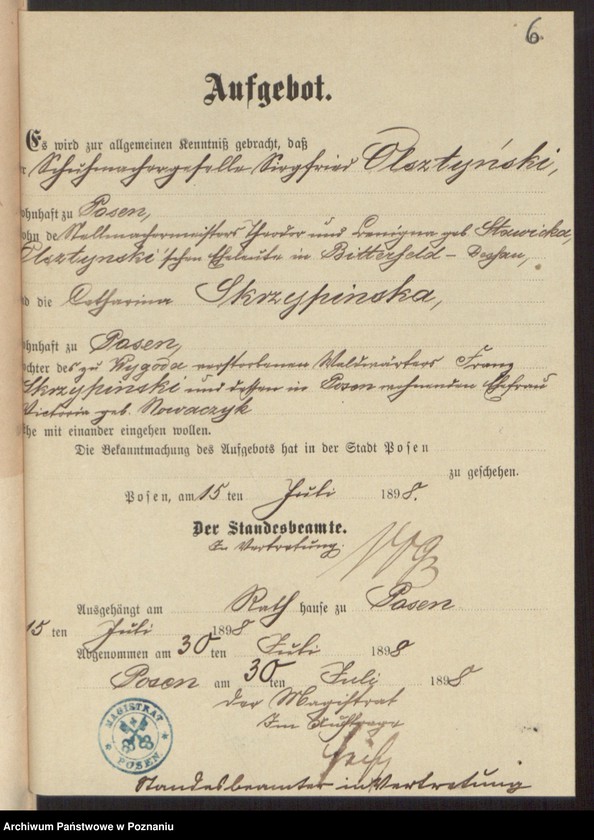 6
Aufgebot.
Es wird zur allgemeinen Kenntniß gebracht, daß
r Schuhmachergeselle Siegfried Olsztyński,
ohnhaft zu Posen,
ohn de Stellmachermeisters Theodor und Benigna geb. Stawicka,
Olsztynski'schen Eheleute in Bitterfeld - Dessau,
d die Catharina Skrzypinska,
ohnhaft zu Posen,
chter des zu Wygoda verstorbenen Waldwärters Franz
Skrzypinski und dessen in Posen wohnenden Ehefrau
Victoria geb. Nowaczyk
he mit einander eingehen wollen.
Die Bekanntmachung des Aufgebots hat in der Stadt Posen
zu geschehen.
Posen, am 15 ten Juli 1898.
Der Standesbeamte.
In Vertretung.
Ausgehängt am Rath hause zu Posen
15 ten Juli 1898
Abgenommen am 30 ten Juli 1898
Posen am 30 ten Juli 1898
Der Magistrat
Im Auftrage
MAGISTRAT
POSEN
Standesbeamter in Vertretung
Archiwum Państwowe w Poznaniu